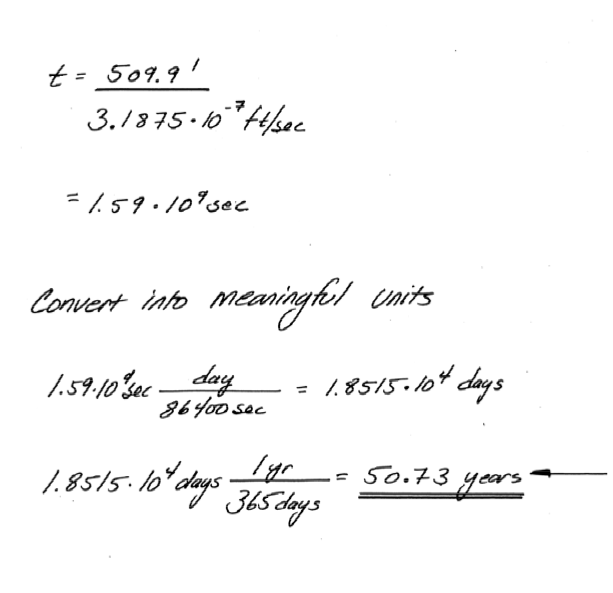 t = 509.9' / 3.1875·10⁻⁷ ft/sec
= 1.59·10⁹ sec
Convert into meaningful units
1.59·10⁹ sec day / 86400 sec = 1.8515·10⁴ days
1.8515·10⁴ days 1 yr / 365 days = 50.73 years